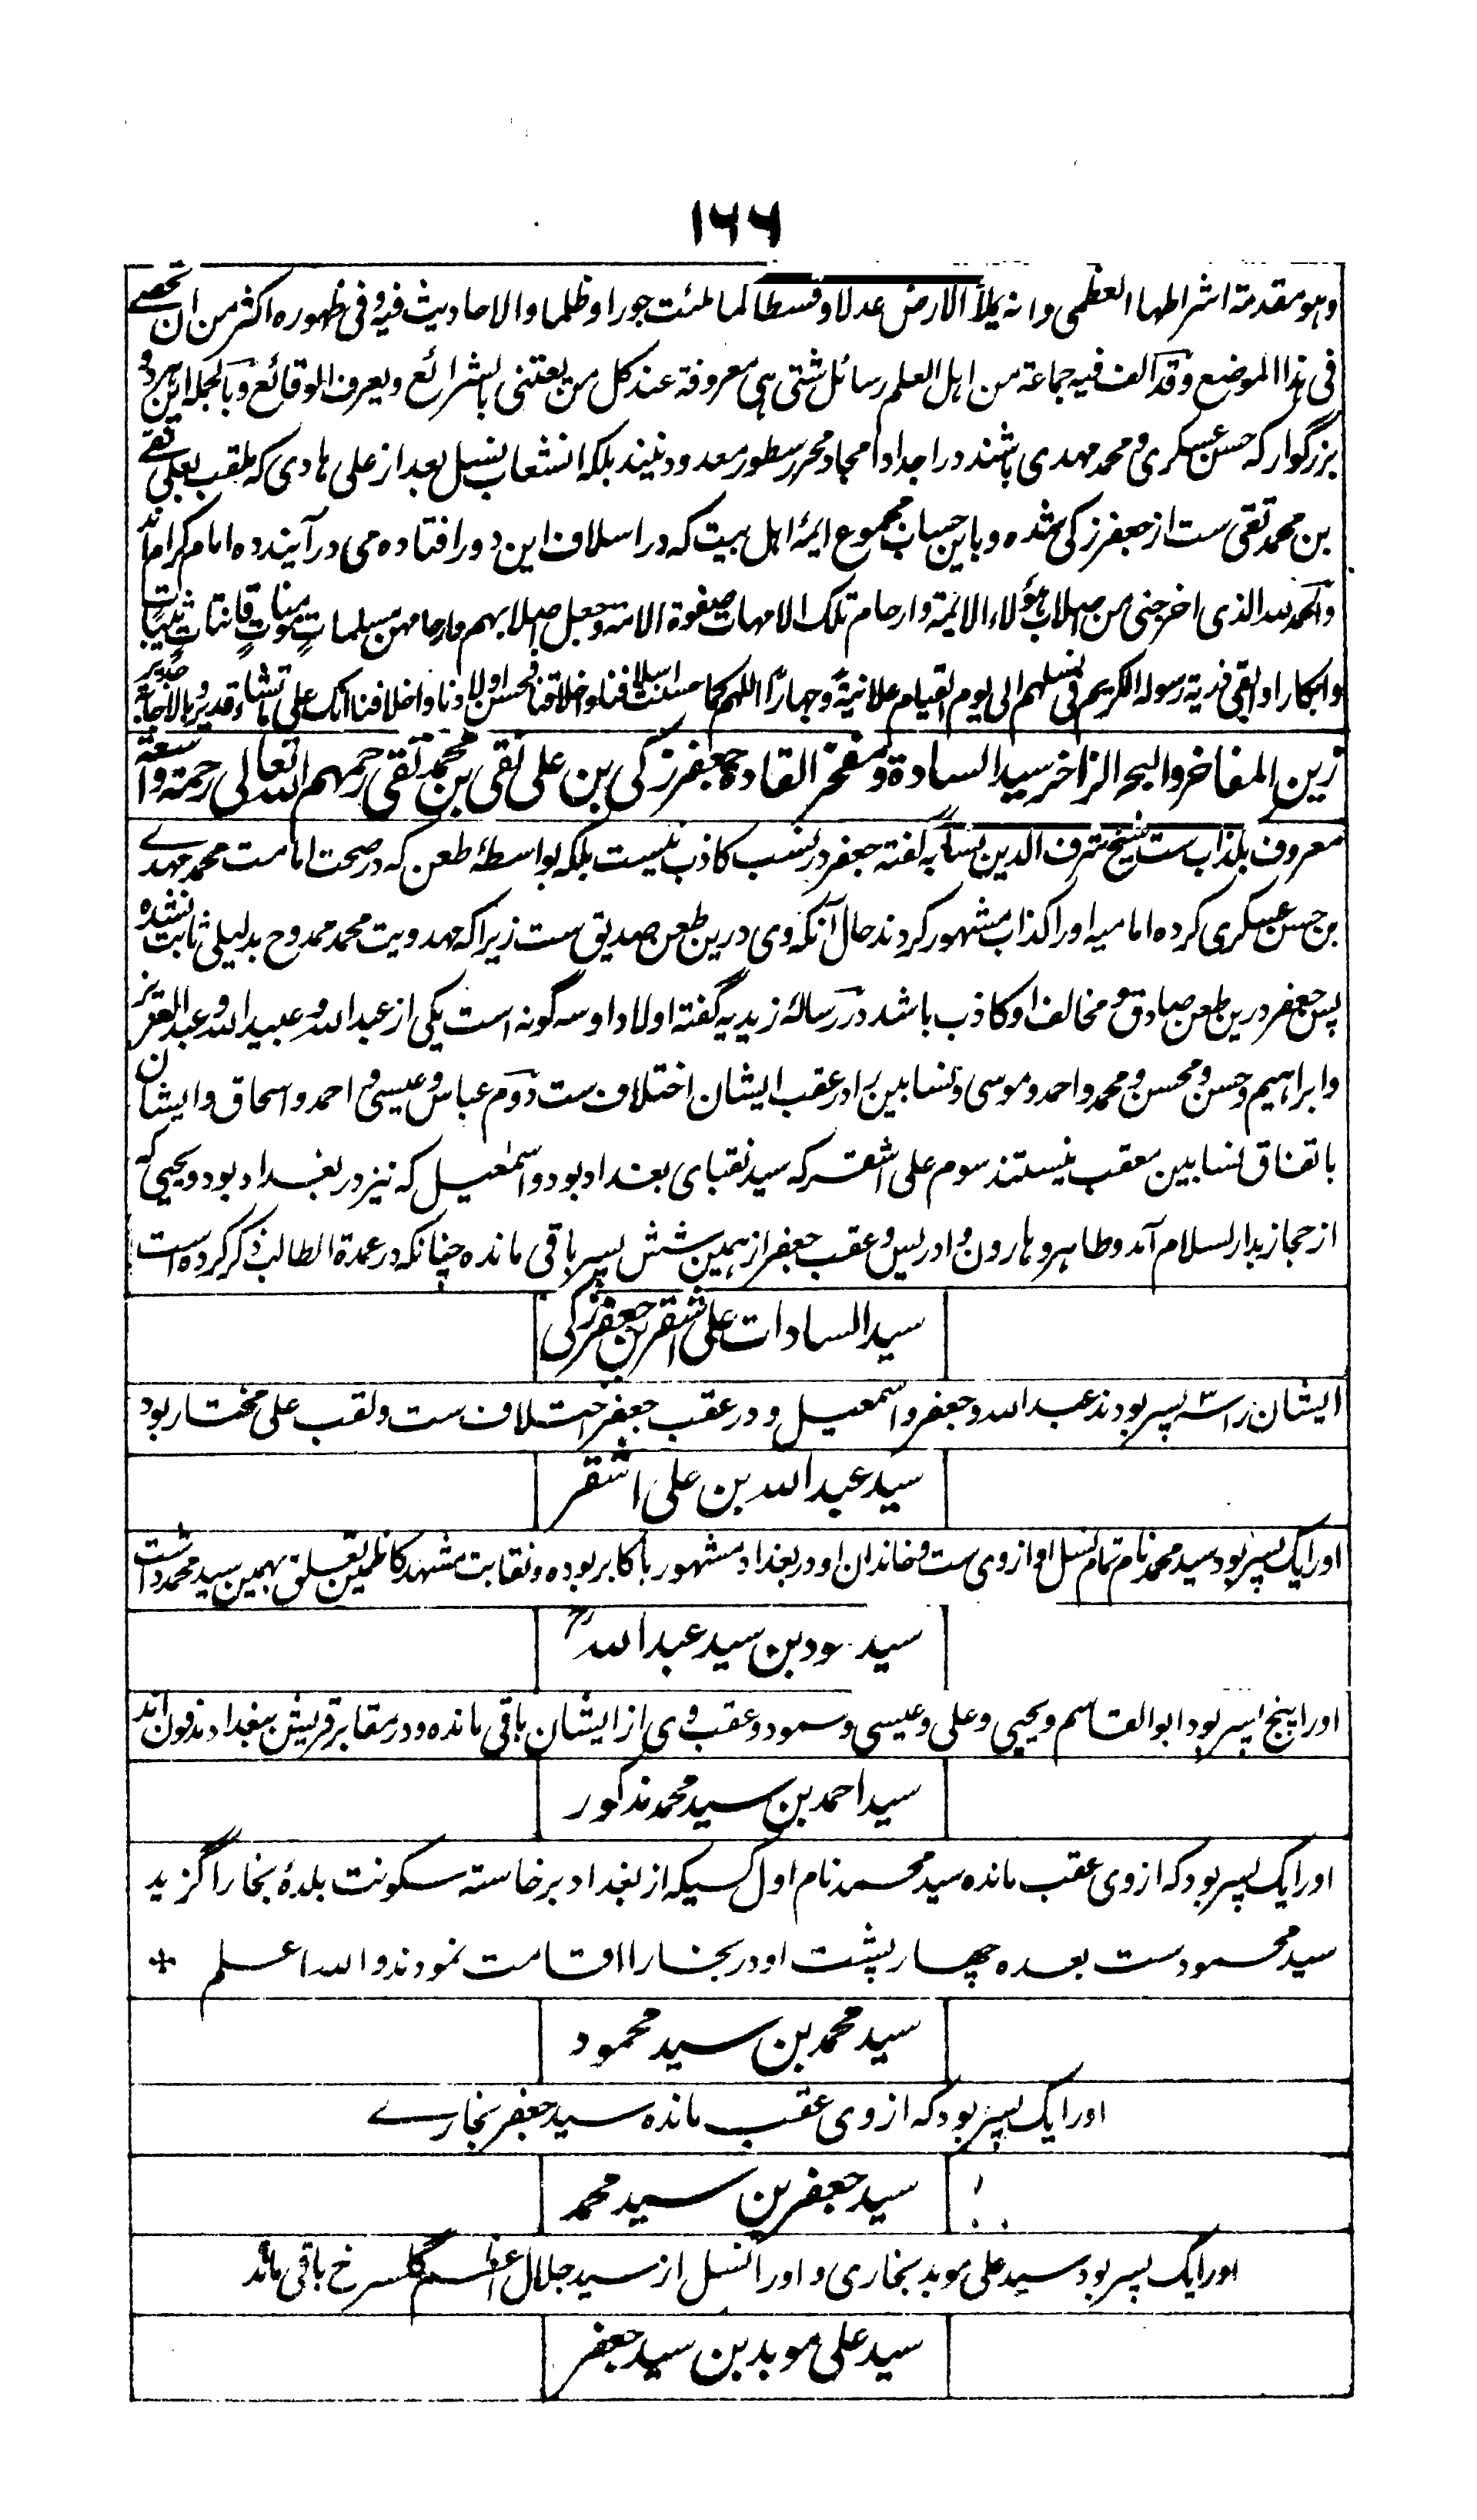 ۱۶۶
وہو مقدمة اشراطہا العظمی وانہ یملأ الارض عدلا وقسطا کما ملئت جورا وظلما والاحادیث فیہ وفی ظہورہ اکثر من ان تحصے
فی ہذا الموضع وقد الف فیہ جماعة من اہل العلم رسائل شتی ہی معروفة عند کل من یعتنی بالشرائع ویعرف الوقائع وبالجملہ این ہر دو
بزرگوار کہ حسن عسکری و محمد مہدی باشند در اجداد امجاد محرر سطور معدود نیند بلکہ انشعاب نسل بعد از علی ہادی کہ ملقب بعلی نقے
بن محمد تقی ست از جعفر زکی شدہ و باین حساب مجموع ایمۂ اہل بیت کہ در اسلاف این دور افتادہ می در آیند دہ امام کرام اند
والحمد للہ الذی اخرجنی من صلاب ہؤلاء الائمة وارحام تلک الامہات صفوة الامة وجعل اصلابہم وارحامہن مسلمات مومنات قانتات ثیبات
وابکارا وابقی ذریة رسولہ الکریم فی نسلہم الی یوم القیام علانیةً وجہارًا اللہم کما حسنت اسلافنا واخلاقنا فحسن اولادنا واخلافنا انک علی ما تشاء قدیر وبالاجابة جدیر
زین المفاخر والبحر الزاخر سید السادة ومفخر القادة جعفر زکی بن علی نقی بن محمد تقی رحمہم اللہ تعالی رحمة واسعة
معروف بکذاب ست شیخ شرف الدین نسابہ گفتہ جعفر در نسب کاذب نیست بلکہ بواسطۂ طعن کہ در صحت امامت محمد مہدے
بن حسن عسکری کردہ امامیہ اورا کذاب مشہور کردند حال آنکہ وی درین طعن صدیق ست زیرا کہ مہدویت محمد ممدوح بدلیلی ثابت نشدہ
پس جعفر درین طعن صادق و مخالف او کاذب باشد در رسالۂ زیدیہ گفتہ اولاد او سہ گونہ است یکی از عبد اللہ و عبید اللہ و عبد العزیز
وابراہیم وحسن ومحسن ومحمد واحمد وموسی ونسابین را در عقب ایشان اختلاف ست دوم عباس وعیسی و احمد واسحاق وایشان
باتفاق نسابین معقب نیستند سوم علی اشقر کہ سید نقبای بغداد بود واسمعیل کہ نیز در بغداد بود ویحیی کہ
از حجاز بدار السلام آمد وطاہر وہارون وادریس وعقب جعفر از ہمین شش پسر باقی ماندہ چنانکہ در عمدة الطالب ذکر کردہ است
سید السادات علی اشقر بن جعفر زکی
ایشان را سہ پسر بودند عبد اللہ وجعفر واسمعیل ودر عقب جعفر اختلاف ست ولقب علی مختار بود
سید عبد اللہ بن علی اشقر
اورا یک پسر بود سید محمد نام تمام نسل او از وی ست و خاندان او در بغداد مشہور باکابر بودہ و نقابت مشہد کاظمین تعلق بہمین سید محمد داشت
سید بن سید عبد اللہ رح
اورا پنج پسر بود ابو القاسم ویحیی وعلی وعیسی و وعقب وی از ایشان باقی ماندہ ودر مقابر قریش ببغداد مدفون اند
سید احمد بن سید محمد مذکور
اورا یک پسر بود کہ از وی عقب ماندہ سید محمد نام اول کسیکہ از بغداد برخاستہ سکونت بلدۂ بخارا گزید
سید محمود ست بعدہ چہار پشت او در بخارا اقامت نمودند واللہ اعلم *
سید محمد بن سید محمود
اورا یک پسر بود کہ از وی عقب ماندہ سید جعفر بخارے
سید جعفر بن سید محمد
اورا یک پسر بود سید علی موید بخاری و اورا نسل از سید جلال اعظم گلسرخ باقی ماند
سید علی موید بن سید جعفر